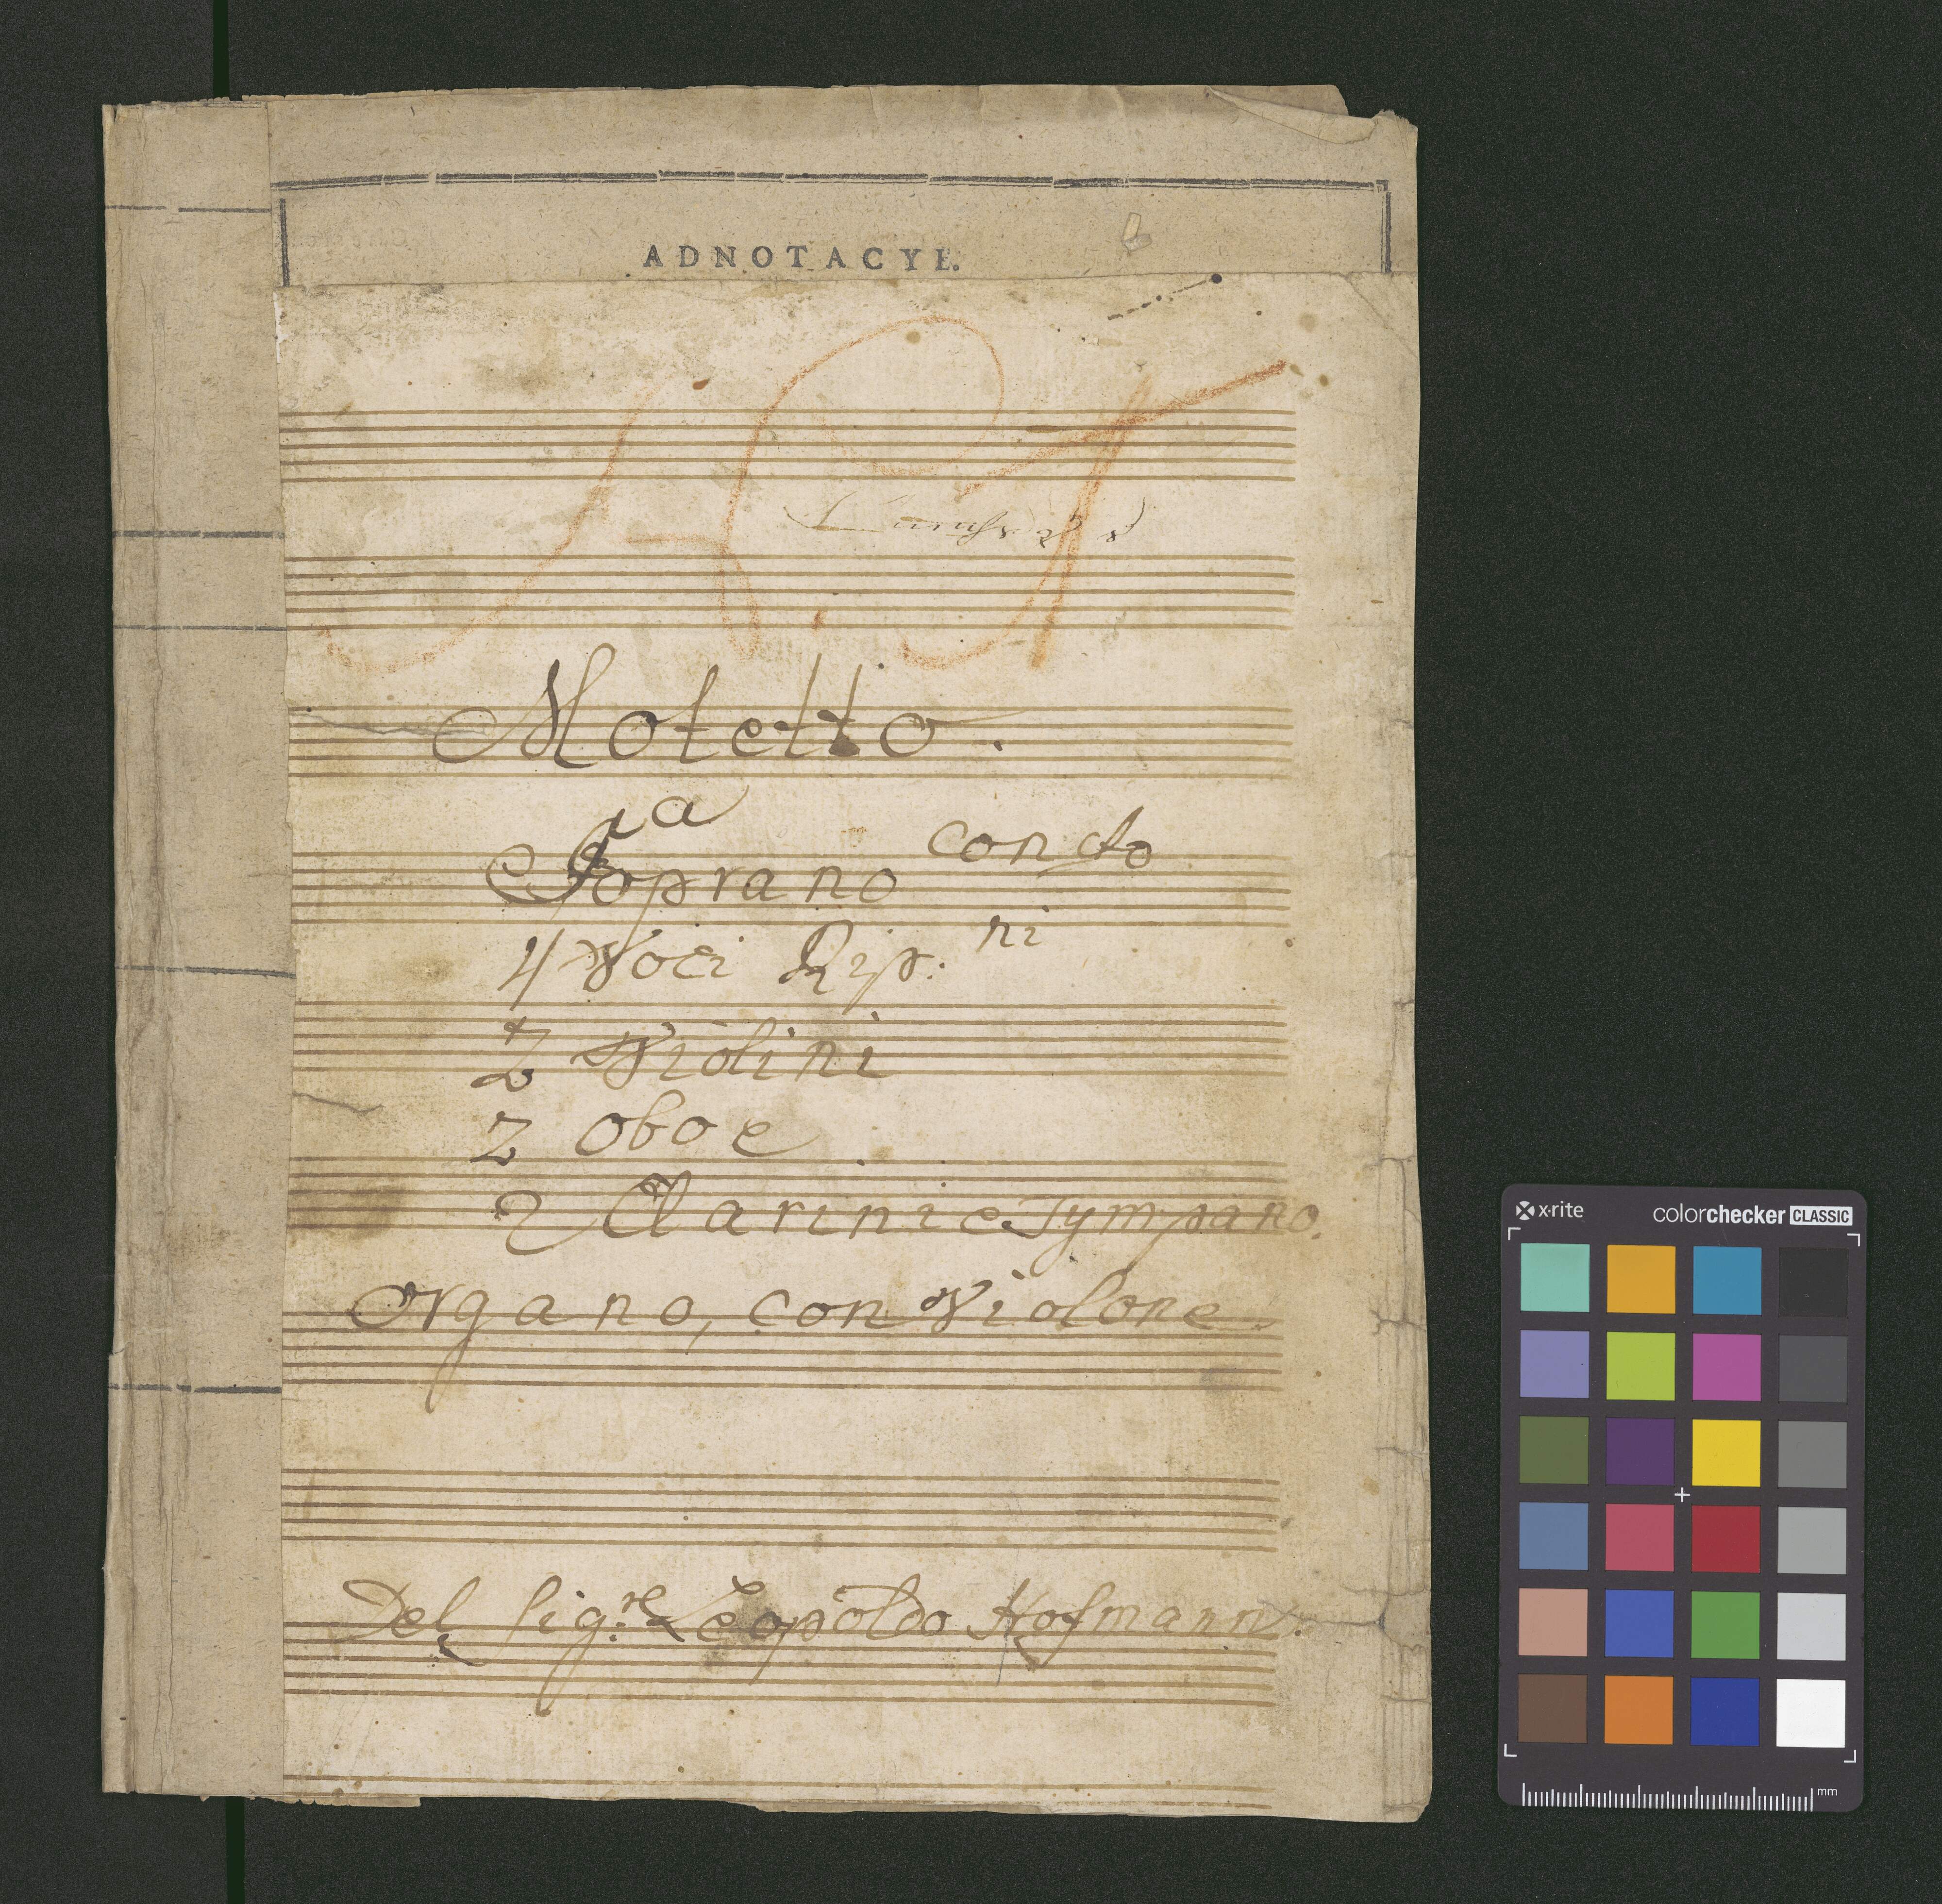 ADNOTACYE.
Motetto.
a
Soprano conc to
4 Voci Rip: ni
2 Violini
2 Oboe
2 Clarini e Tympano.
Organo, con Violone.
Del Sig:re Leopoldo Hofmann.
x-rite colorchecker CLASSIC
mm